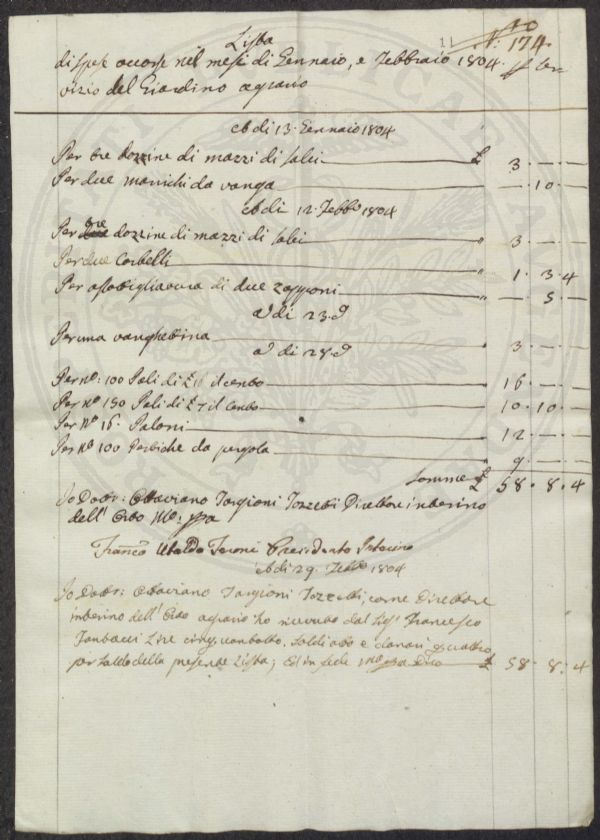 11 N: 174
Lista
di spese occorse nel mese di Gennaio, e Febbraio 1804 pr Ser-
vizio del Giardino agrario
A di 13. Gennaio 1804
Per tre dozzine di mazzi di salci £ 3 . — . —
Per due manichi da vanga — . 10 . —
A di 12. Febbo 1804
Per tre dozzine di mazzi di salci " 3 . — . —
Per due Corbelli " 1 . 3 . 4
Per di due zapponi " — . 5 . —
A di 23. do
Per una vanghettina 3 . — . —
A di 28. do
Per No: 100 Pali di £ 16 il cento " 16 . — . —
Per No 150 Pali di £ 7 il cento " 10 . 10 . —
Per No 16. Paloni " 12 . — . —
Per No 100 Pertiche da pergola " 9 . — . —
Somma £ 58 . 8 . 4
Io Dottr: Ottaviano Targioni Tozzetti Direttore interino
dell' Orto Mo: ppa
Francco Ubaldo Feroni Presidente Interino
A di 29. Febbo 1804
Io Dottr: Ottaviano Targioni Tozzetti, come Direttore
interino dell' Orto agrario ho ricevuto dal Sigr Francesco
Lire cinquantotto, soldi otto e danari quattro
per saldo della presente Lista; Ed in fede Mo ppa Dico £ 58 . 8 . 4